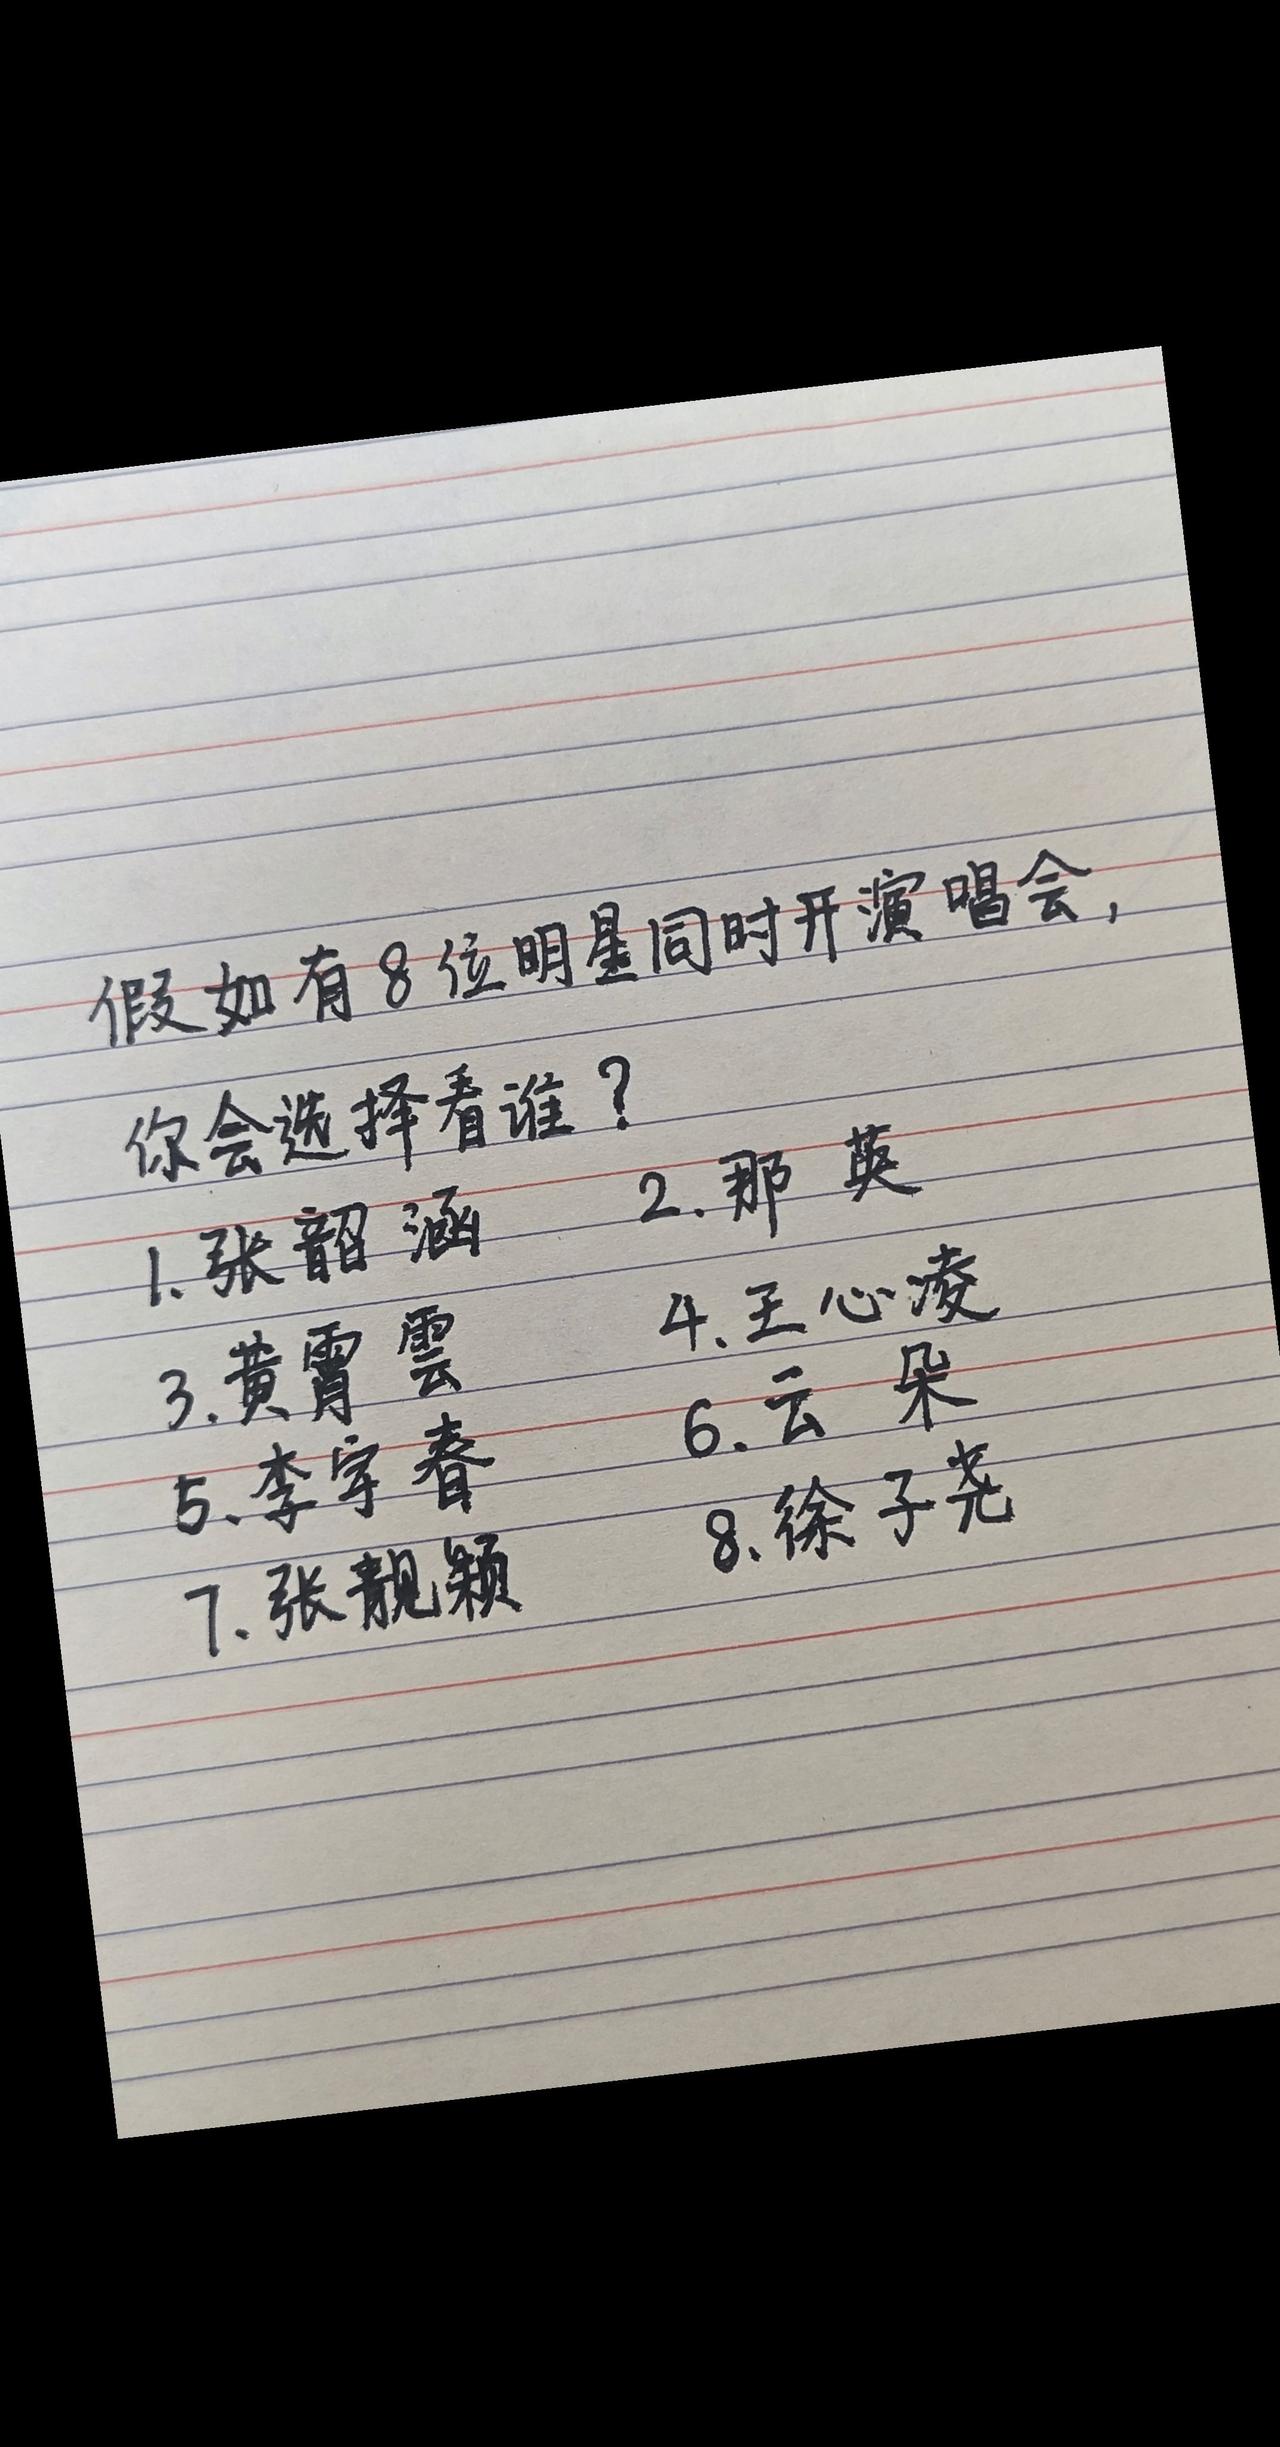 假如有8位明星同时开演唱会,
你会选择看谁?
1.张韶涵 2.那英
3.黄霄雲 4.王心凌
5.李宇春 6.云朵
7.张靓颖 8.徐子尧